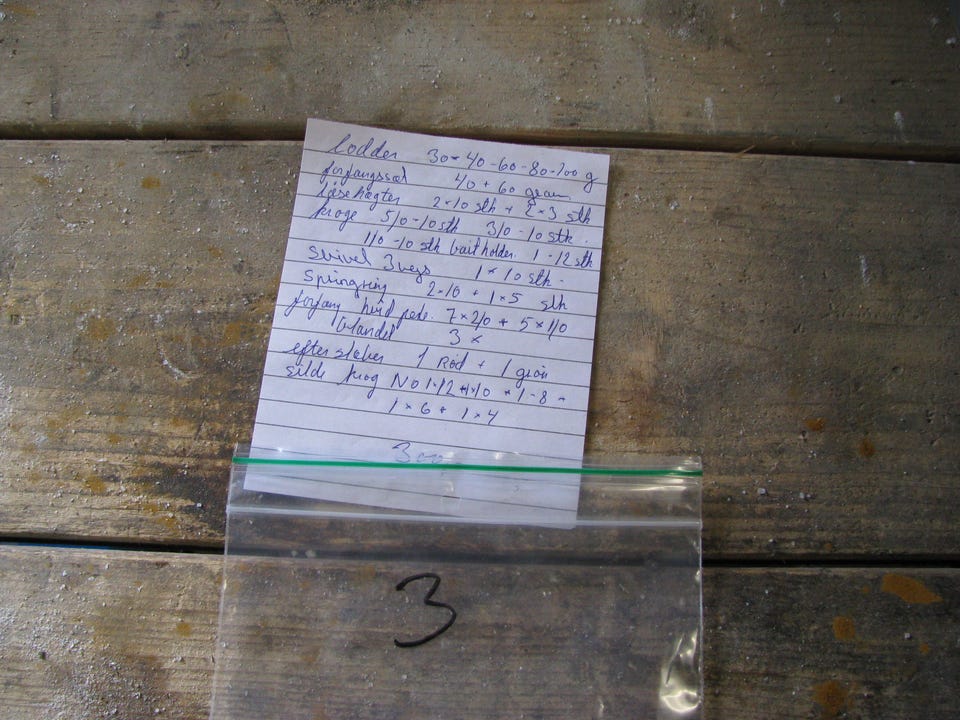 lodder 30-40-60-80-100 g
forfangssæt 40 + 60 gram
låsehægter 2×10 stk + 2×3 stk
kroge 5/0-10 stk 3/0-10 stk.
1/0-10 stk baitholder. 1-12 stk
Svivel 3vejs 1×10 stk.
Springring 2×10 + 1×5 stk
forfang hvid perle. 7×2/0 + 5×1/0
blandet 3×
efterslæber 1 Rød + 1 grøn
silde krog No 1×12 +1×10 +1-8 +
1×6 + 1×4
300
3